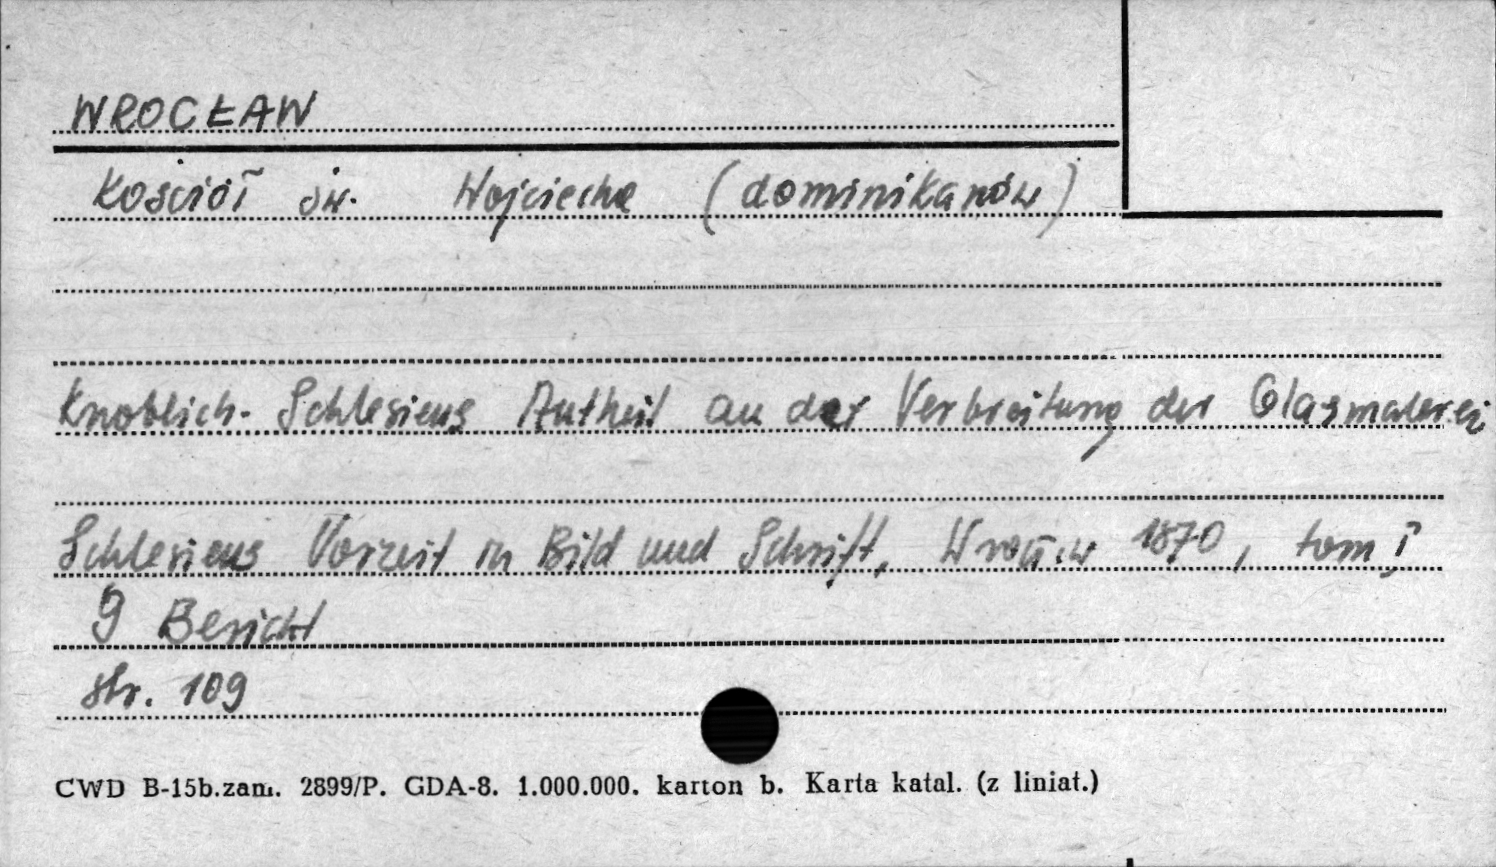 WROCŁAW
Kościół św. Wojciecha (dominikanów)
Knoblich. Schlesiens Antheil an der Verbreitung der Glasmalerei
Schlesiens Vorzeit in Bild und Schrift, Wrocław 1870, tom I
9 Bericht
str. 109
CWD B-15b.zam. 2899/P. GDA-8. 1.000.000. karton b. Karta katal. (z liniat.)